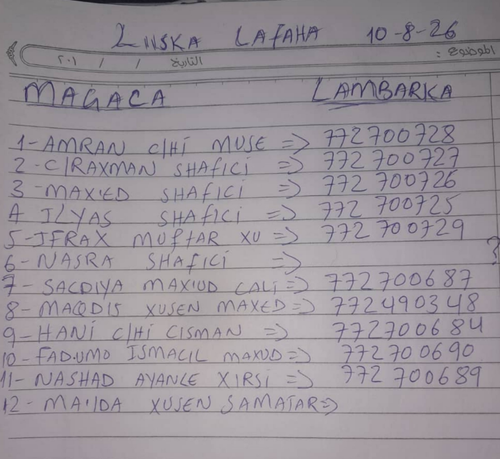 LIISKA LAFAHA 10-8-26
الموضوع : التاريخ / / ٢٠١
MAGACA LAMBARKA
1- AMRAN C/HI MUSE => 772700728
2- C/RAXMAN SHAFICI => 772 700727
3- MAXED SHAFICI => 772 700726
4 ILYAS SHAFICI => 772 700725
5- IFRAX MUFTAR XU => 772 700729
6- NASRA SHAFICI =>
7- SACDIYA MAXUD CALI => 772700687
8- MAQDIS XUSEN MAXED => 772490348
9- HANI C/HI CISMAN => 772700684
10- FADUMO ISMACIL MAXUD => 772700690
11- NASHAD AYANLE XIRSI => 772 700689
12- MA'IDA XUSEN SAMATAR =>